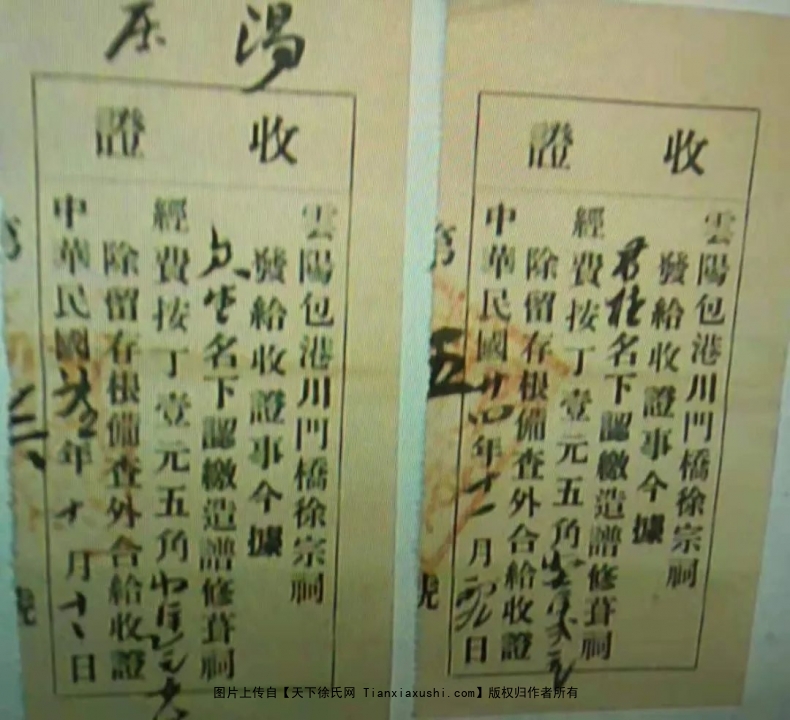 湯
收證
雲陽包港川門橋徐宗祠
發給收證事今據
名下認繳造譜修葺祠
經費按丁壹元五角
除留存根備查外合給收證
中華民國年十月十八日
收證
雲陽包港川門橋徐宗祠
發給收證事今據
君桂名下認繳造譜修葺祠
經費按丁壹元五角
除留存根備查外合給收證
中華民國廿四年十一月日
五
图片上传自【天下徐氏网 Tianxiaxushi.com】版权归作者所有